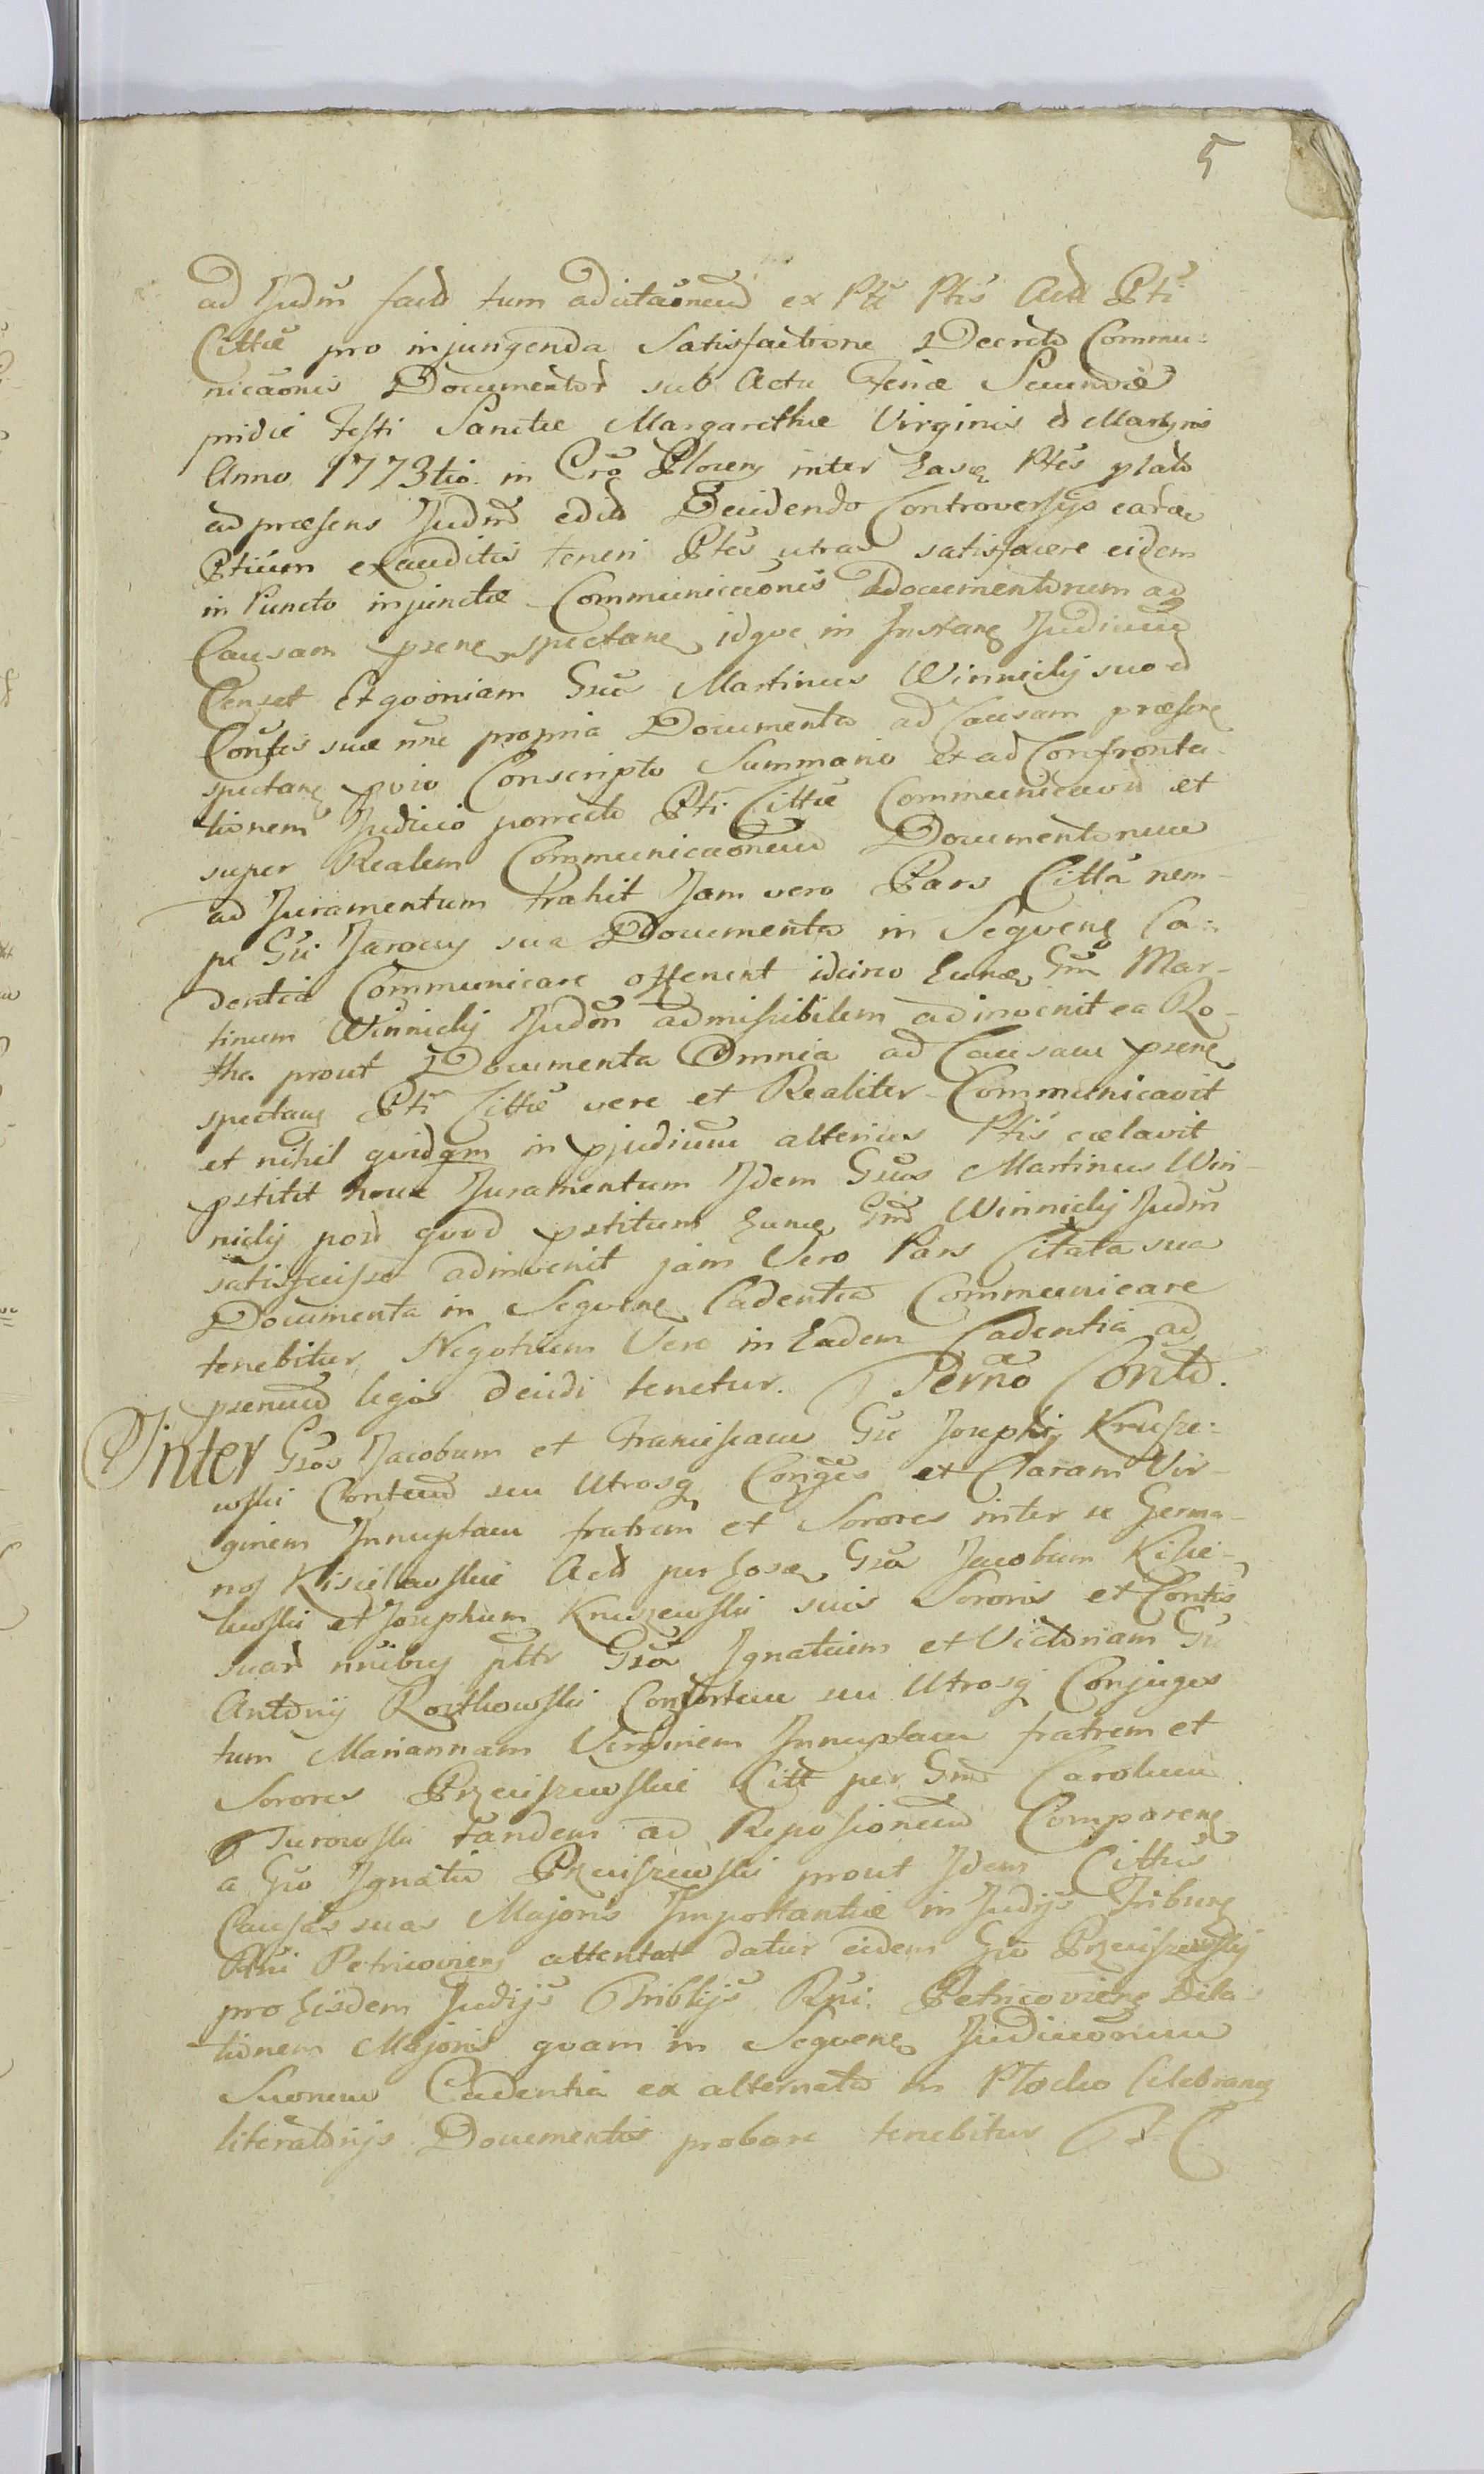 5
ad Judm facto tum ad citaōnem ex Pte Ptis Act Pti
Cittæ pro injungenda Satisfactione Decreto Commu:
nicaōnis Documentor sub Actu Feriæ Secundæ
pridie Festi Sanctæ Margarethæ Virginis et Martyris
Anno 1773tio. in Cro Plocen inter Easq Ptes plato
ad præsens Judm edito Decidendo Controversijs earq
Ptium exauditis teneri Ptes utras satisfacere eidem
in Puncto injunctæ Communicaōnis Documentorum ad
Causam psene spectane idque in Instane Judicium
Censet Et qvoniam Gsus Martinus Winnicky suo et
Contis suæ nne propria Documenta ad Causam præsene
spectane pvio Conscripto Summario et ad Confronta-
tionem Judicio porrecto Pti Cittæ Communicavit et
super Realem Communicaōnem Documentorum
ad Juramentum trahit Jam vero Pars Citta nem-
pe Gsi Jarocy sua Documenta in Seqvene Ca:
dentia Communicare offerent idcirco Eunq Gm Mar-
tinum Winnicky Judm admissibilem adinvenit ea Ro-
tha prout Documenta Omnia ad Causam psene
spectane Pti Cittæ vere et Realiter Communicavit
et nihil qvidqm in pjudicium alterius Ptis cælavit
pstitit hocce Juramentum Idem Gsus Martinus Win-
nicky post qvod pstitum Eunq Gm Winnicky Judm
satisfecisse adinvenit jam Vero Pars Citata sua
Documenta in Seqvene Cadentia Communicare
tenebitur, Negotium Vero in Eadem Cadentia ad
psenm legis decidi tenetur. Perno Contd.
Inter Gsos Jacobum et Franciscam Gsi Josephi Krusze:
wski Contem seu Utrosq Conges et Claram Vir-
ginem Innuptam fratrem et Sorores inter se Germa-
nos Kisielewskie Act per Eosq Gsos Jacobum Kisie-
lewski et Josephum Kruszewski suis Sororis et Contis
suar nnibus pltr Gsos Ignatium et Victoriam Gsi
Antonij Rostkowski Consortem seu Utrosq Conjuges
tum Mariannam Virginem Innuptam fratrem et
Sorores Przeciszewskie Citt per Gm Carolum
Turowski tandem ad Repositionem Comparene
a Gso Ignatio Przeciszewski prout Idem Cittus
Causas suas Majoris Importantiæ in Judijs Tribune
Rni Petricoviens attentat datur eidem Gso Przeciszewski
pro Eisdem Judijs Triblijs Rni. Petricoviens Dila
tionem Majoris qvam in Seqvene Judiciorum
Suorum Cadentia ex alternata in Plocko Celebrane
literatorijs Documentis probare tenebitur P. C.